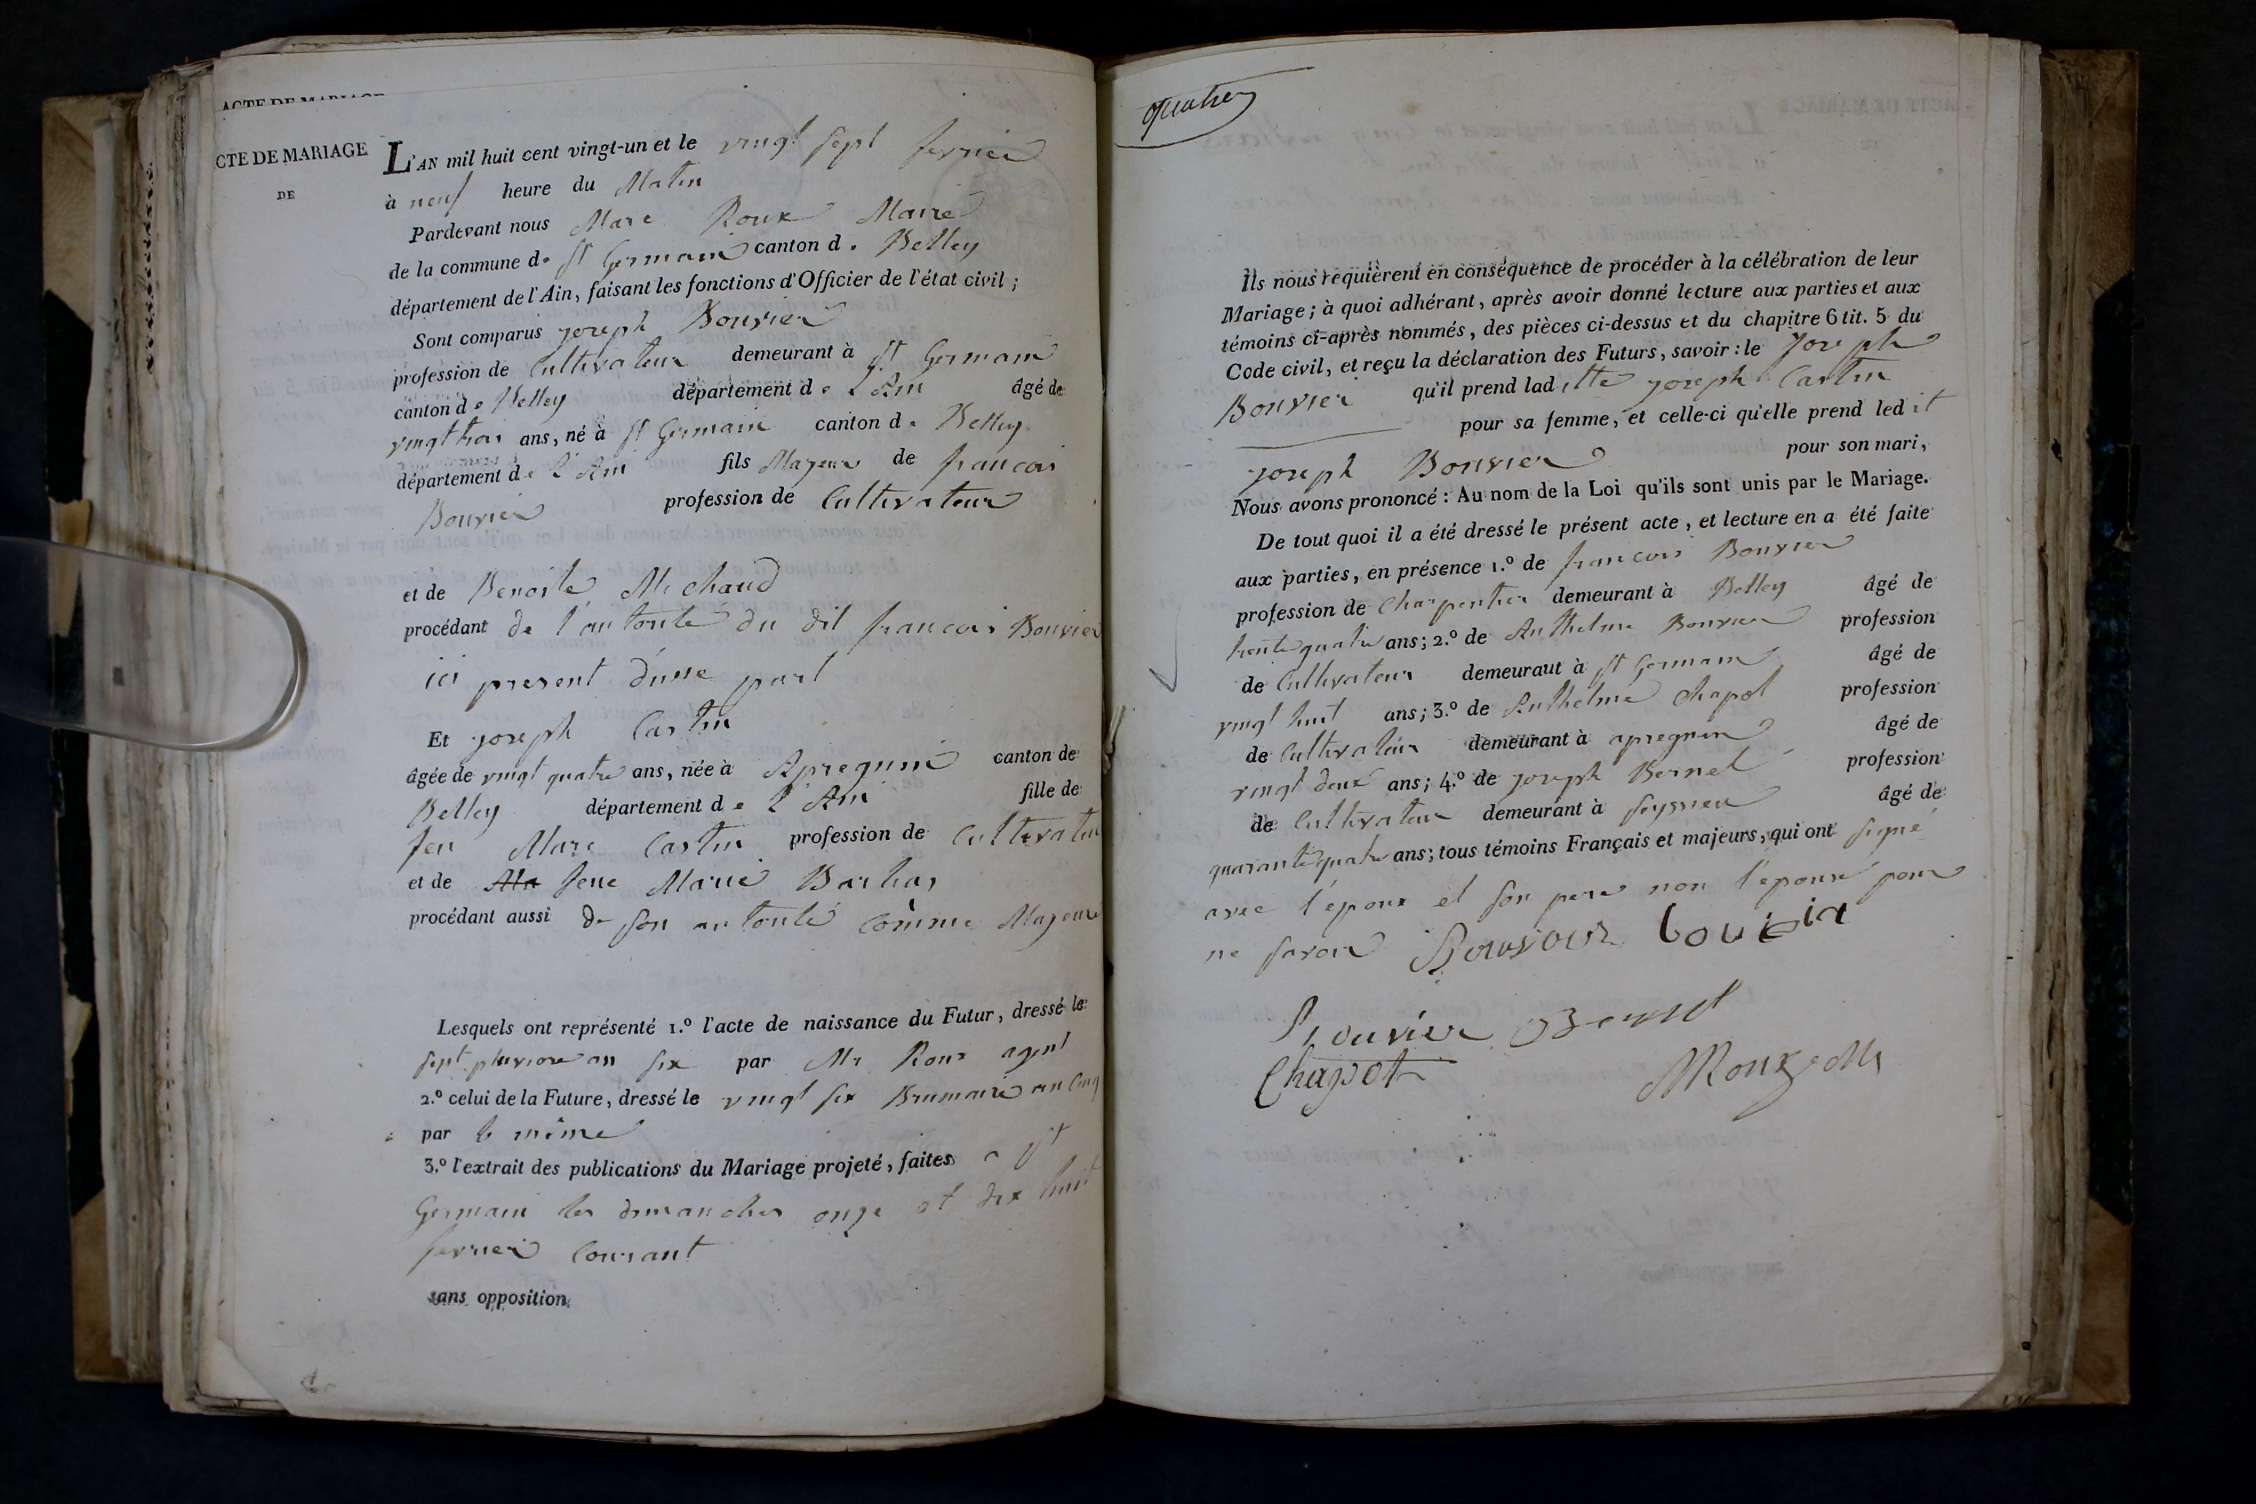 ACTE DE MARIAGE
CTE DE MARIAGE
DE
L'AN mil huit cent vingt-un et le vingt sept fevrier
à neuf heure du Matin
Pardevant nous Marc Roux Maire
de la commune de St Germain canton de Belley
département de l'Ain, faisant les fonctions d'Officier de l'état civil;
Sont comparus joseph Bouvier
profession de Cultivateur demeurant à St Germain
canton de Belley département de L'Ain âgé de
vingt trois ans, né à St Germain canton de Belley
département de L'Ain fils Majeur de francois
Bouvier profession de Cultivateur
et de Benoite Michaud
procédant de l'autorité du dit francois Bouvier
ici present d'une part
Et joseph Castin
âgée de vingt quatre ans, née à Apregnin canton de
Belley département de L'Ain fille de
feu Marc Castin profession de Cultivateur
et de feue Marie Barbas
procédant aussi de son autorité comme Majeure
Lesquels ont représenté 1.º l'acte de naissance du Futur, dressé le
sept pluviose an six par Mr Roux agent
2.º celui de la Future, dressé le vingt six Brumaire an Cinq
par le même
3.º l'extrait des publications du Mariage projeté, faites a St
Germain les dimanches onze et dix huit
fevrier Courant
sans opposition
quatre
Ils nous requièrent en conséquence de procéder à la célébration de leur
Mariage; à quoi adhérant, après avoir donné lecture aux parties et aux
témoins ci-après nommés, des pièces ci-dessus et du chapitre 6 tit. 5 du
Code civil, et reçu la déclaration des Futurs, savoir: le Joseph
Bouvier qu'il prend laditte joseph Castin
pour sa femme, et celle-ci qu'elle prend ledit
joseph Bouvier pour son mari,
Nous avons prononcé: Au nom de la Loi qu'ils sont unis par le Mariage.
De tout quoi il a été dressé le présent acte, et lecture en a été faite
aux parties, en présence 1.º de francois Bouvier
profession de Charpentier demeurant à Belley âgé de
trente quatre ans; 2.º de Anthelme Bouvier profession
de Cultivateur demeuraut à St Germain âgé de
vingt huit ans; 3.º de Anthelme Chapot profession
de Cultivateur demeurant à apregnin âgé de
vingt deux ans; 4.º de joseph Bernet profession
de Cultivateur demeurant à seyssieu âgé de
quarante quatre ans; tous témoins Français et majeurs, qui ont signé
avec l'epoux et son pere non l'epouse pour
ne savoir Bouvier
Bouvier
Chapot MRoux Me